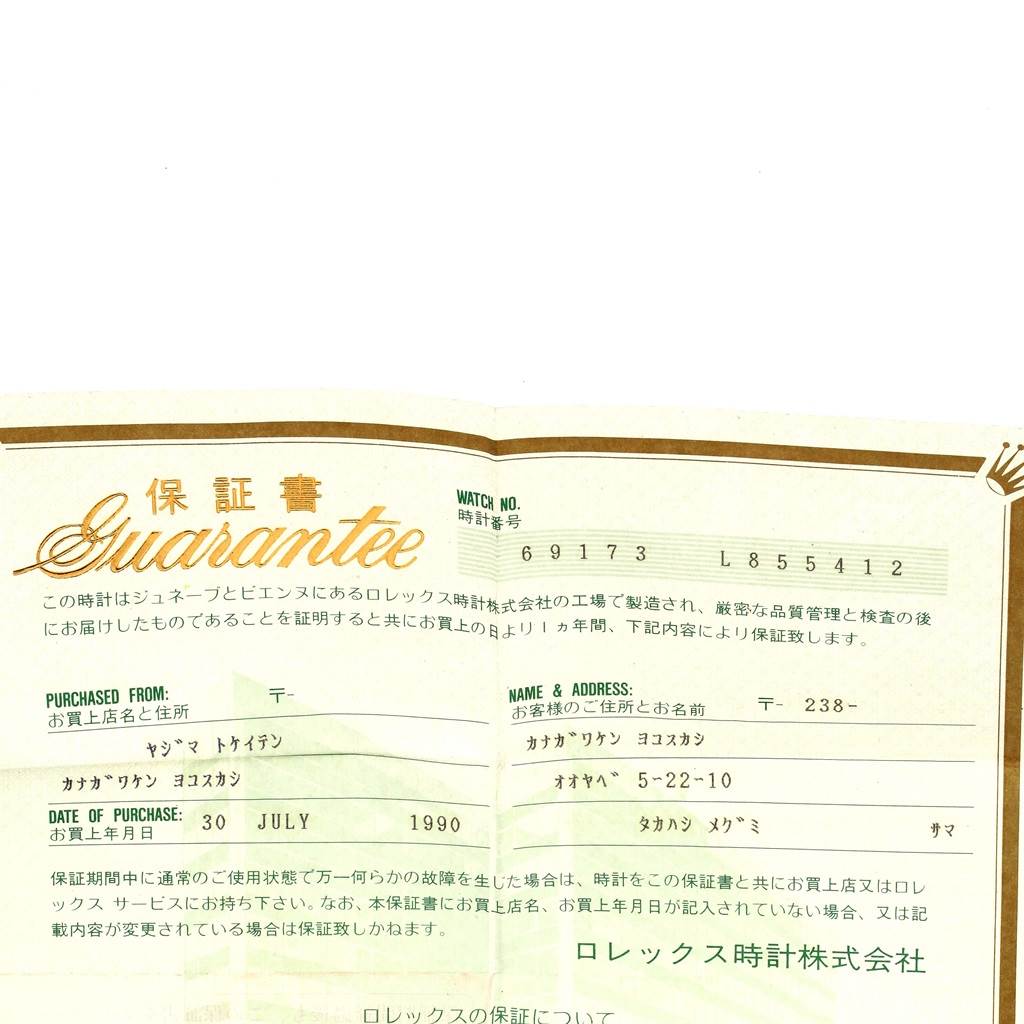 保証書
Guarantee
WATCH NO.
時計番号
69173 L855412
この時計はジュネーブとビエンヌにあるロレックス時計株式会社の工場で製造され、厳密な品質管理と検査の後
にお届けしたものであることを証明すると共にお買上の日より1ヵ年間、下記内容により保証致します。
PURCHASED FROM: 〒-
お買上店名と住所
ﾔｼﾞﾏ ﾄｹｲﾃﾝ
ｶﾅｶﾞﾜｹﾝ ﾖｺｽｶｼ
DATE OF PURCHASE:
お買上年月日
30 JULY 1990
NAME & ADDRESS:
お客様のご住所とお名前 〒- 238-
ｶﾅｶﾞﾜｹﾝ ﾖｺｽｶｼ
ｵｵﾔﾍﾞ 5-22-10
ﾀｶﾊｼ ﾒｸﾞﾐ ｻﾏ
保証期間中に通常のご使用状態で万一何らかの故障を生じた場合は、時計をこの保証書と共にお買上店又はロレ
ックス サービスにお持ち下さい。なお、本保証書にお買上店名、お買上年月日が記入されていない場合、又は記
載内容が変更されている場合は保証致しかねます。
ロレックス時計株式会社
ロレックスの保証について